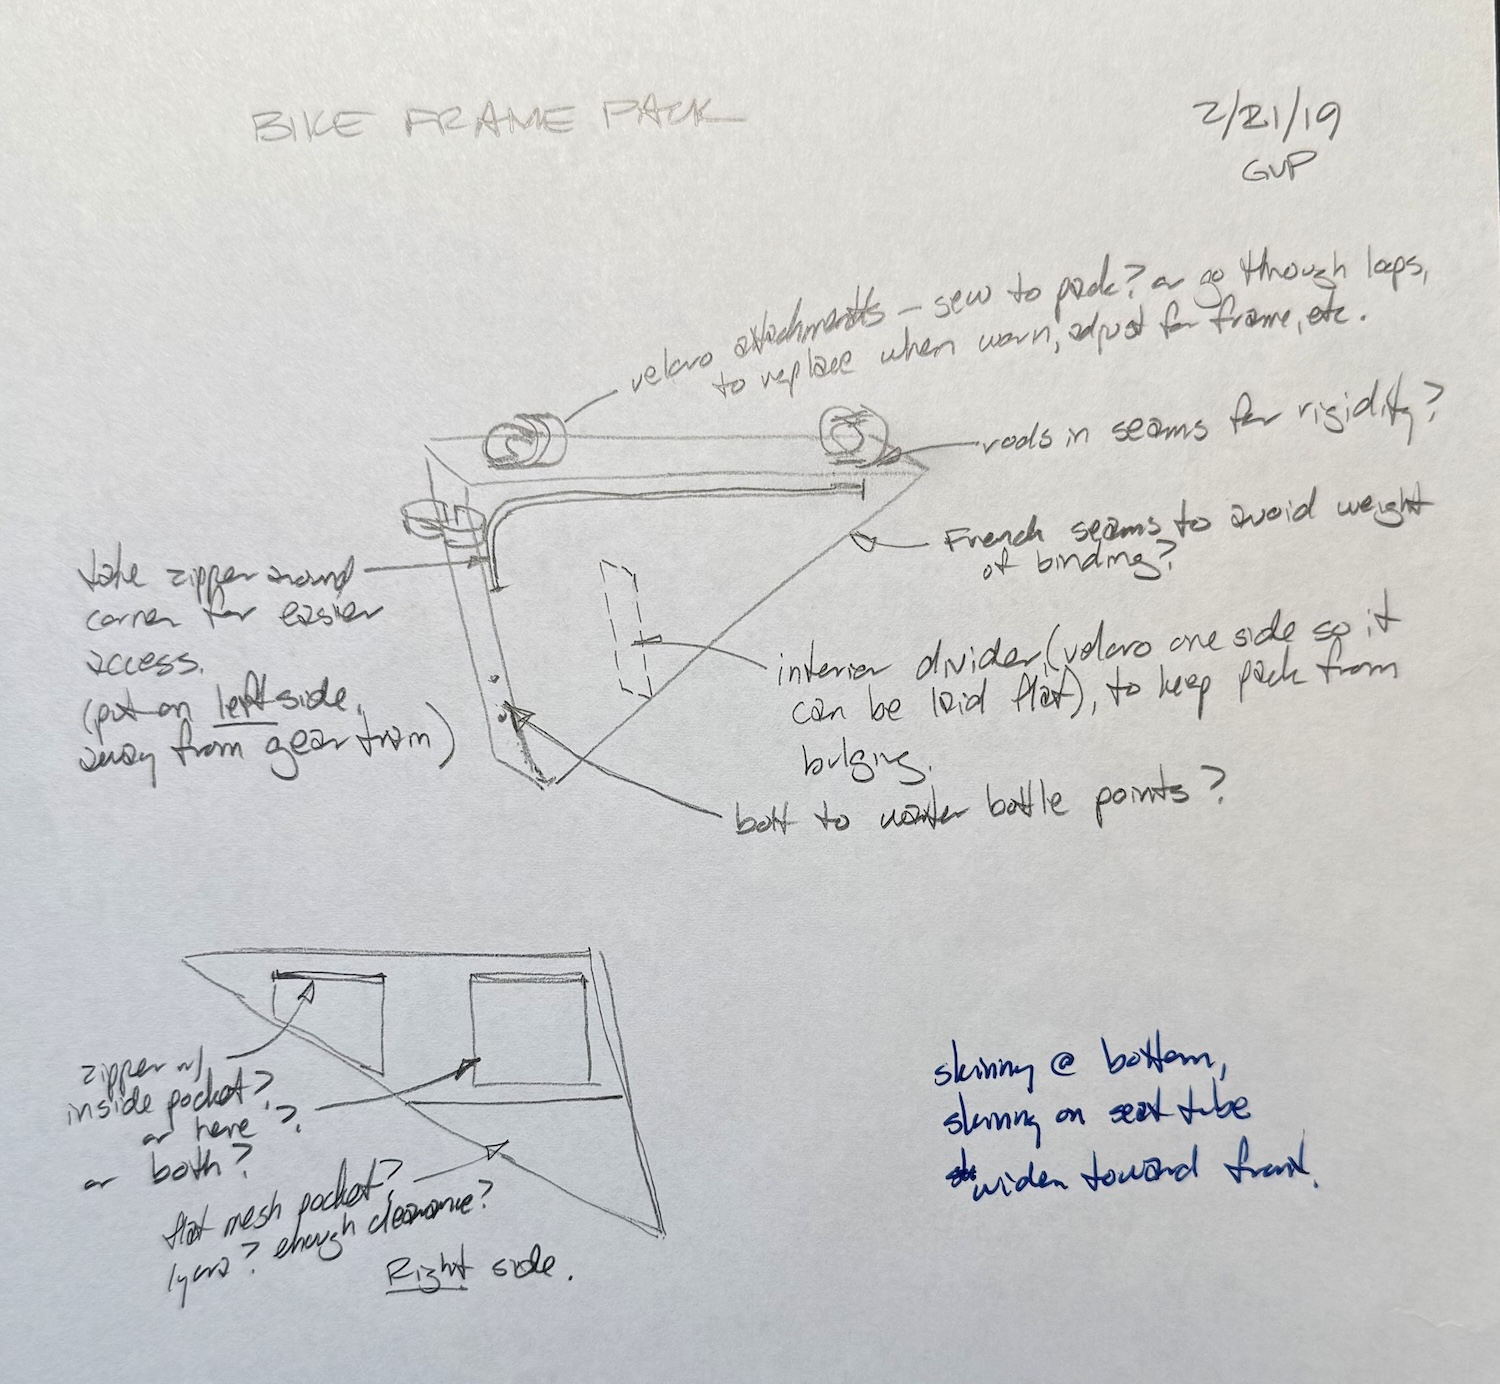 BIKE FRAME PACK
2/21/19
GVP
velcro attachments – sew to pack? or go through loops,
to replace when worn, adjust for frame, etc.
rods in seams for rigidity?
French seams to avoid weight
of binding?
take zipper around
corner for easier
access.
(put on left side,
away from gear train)
interior divider, (velcro one side so it
can be laid flat), to keep pack from
bulging.
bolt to water bottle points?
zipper w/
inside pocket?
or here?
or both?
flat mesh pocket?
lycra? enough clearance?
Right side.
skinny @ bottom,
skinny on seat tube
widen toward front.